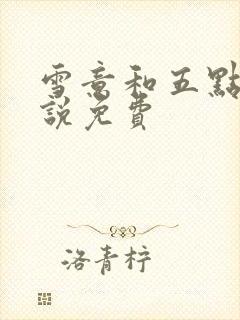 雪意和五點
說免費
洛青梓